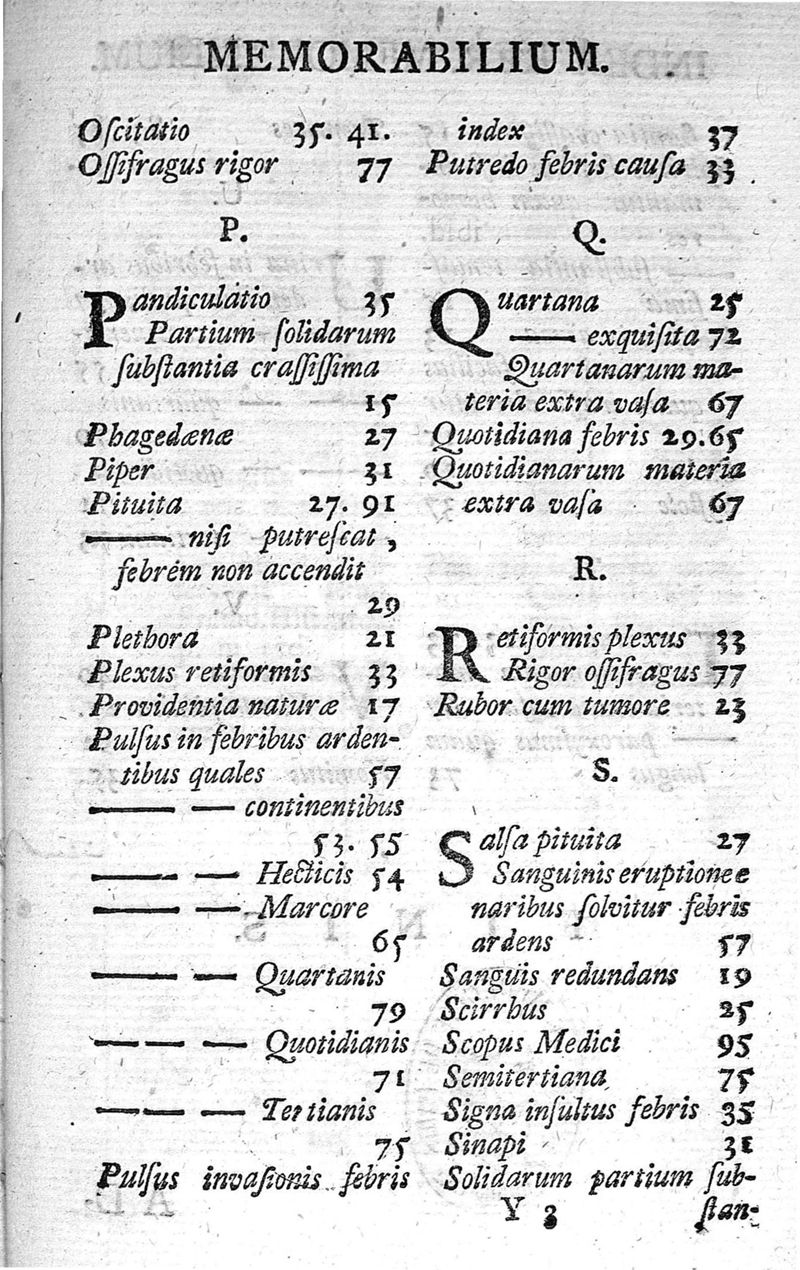 MEMORABILIUM.
Oſcitatio 35. 41.
Oſſifragus rigor 77
P.
Pandiculatio 35
Partium ſolidarum
ſubſtantia craſſiſſima
15
Phagedænæ 27
Piper 31
Pituita 27. 91
—— niſi putreſcat,
febrem non accendit
29
Plethora 21
Plexus retiformis 33
Providentia naturæ 17
Pulſus in febribus arden-
tibus quales 57
—— — continentibus
53. 55
—— — Hecticis 54
—— — Marcore
65
—— — Quartanis
79
—— — Quotidianis
71
—— — Tertianis
75
Pulſus invaſionis febris
index 37
Putredo febris cauſa 33
Q.
Quartana 25
—— exquiſita 72
Quartanarum ma-
teria extra vaſa 67
Quotidiana febris 29.65
Quotidianarum materia
extra vaſa 67
R.
Retiformis plexus 33
Rigor oſſifragus 77
Rubor cum tumore 23
S.
Salſa pituita 27
Sanguinis eruptione e
naribus ſolvitur febris
ardens 57
Sanguis redundans 19
Scirrhus 25
Scopus Medici 95
Semitertiana 75
Signa inſultus febris 35
Sinapi 31
Solidarum partium ſub-
Y 3 ſtan-